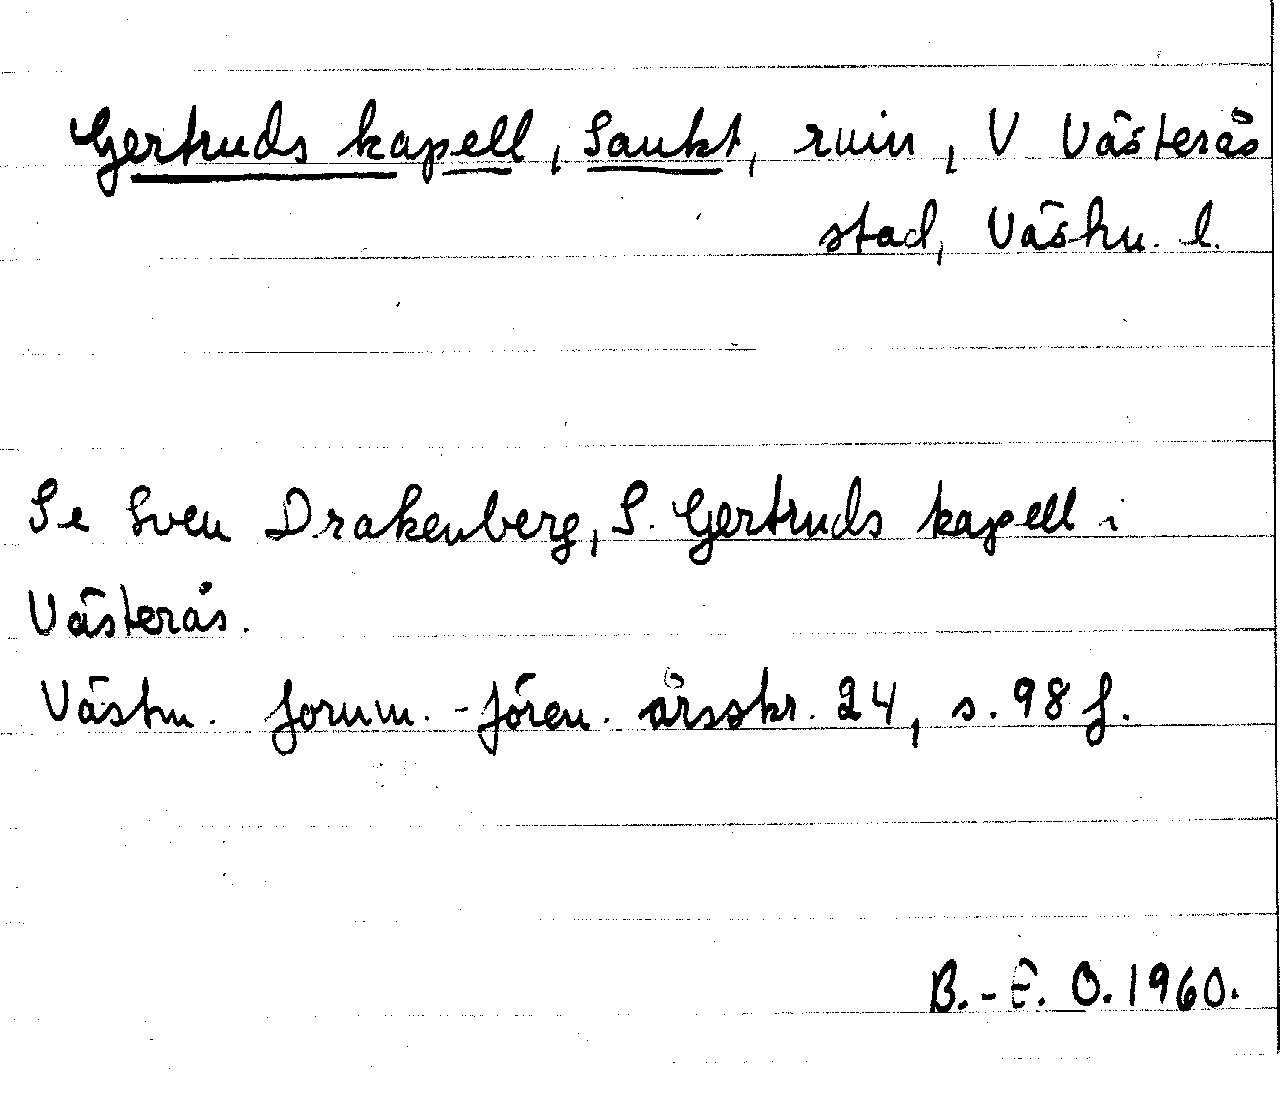 Gertruds kapell, Sankt, ruin, V Västerås
stad, Västm. l.
Se Sven Drakenberg, S. Gertruds kapell i
Västerås.
Västm. fornm.-fören. årsskr. 24, s. 98 f.
B.-E. O. 1960.